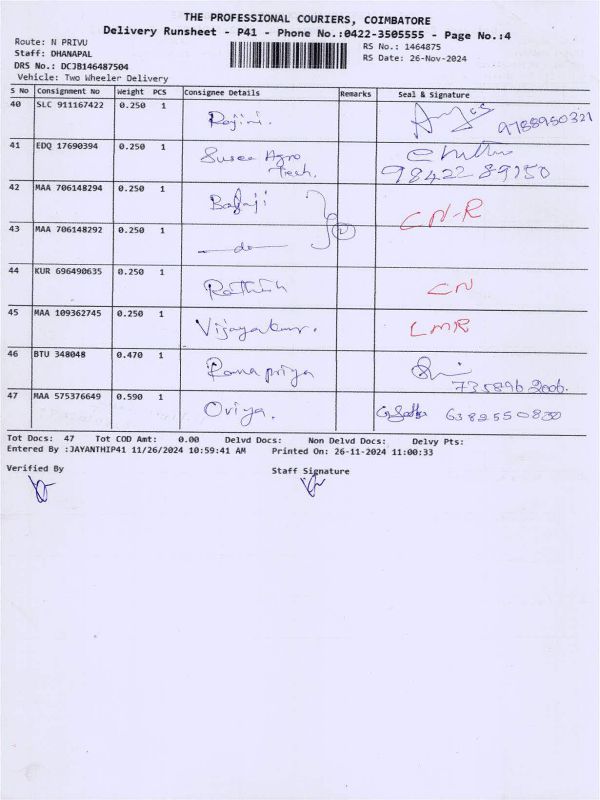 THE PROFESSIONAL COURIERS, COIMBATORE
Delivery Runsheet - P41 - Phone No.:0422-3505555 - Page No.:4
Route: N PRIVU
RS No.: 1464875
Staff: DHANAPAL
RS Date: 26-Nov-2024
DRS No.: DCJB146487504
Vehicle: Two Wheeler Delivery
S No Consignment No Weight PCS Consignee Details Remarks Seal & Signature
40 SLC 911167422 0.250 1 Rojini. 9788950321
41 EDQ 17690394 0.250 1 Susee Agro Tech. 98422 89150
42 MAA 706148294 0.250 1 Balaji CN-R
43 MAA 706148292 0.250 1 —do— 2
44 KUR 696490635 0.250 1 Rathish CN
45 MAA 109362745 0.250 1 Vijayakumar. LMR
46 BTU 348048 0.470 1 Rama priya 735896 2006.
47 MAA 575376649 0.590 1 Oviya. 6382550830
Tot Docs: 47 Tot COD Amt: 0.00 Delvd Docs: Non Delvd Docs: Delvy Pts:
Entered By :JAYANTHIP41 11/26/2024 10:59:41 AM Printed On: 26-11-2024 11:00:33
Verified By
Staff Signature